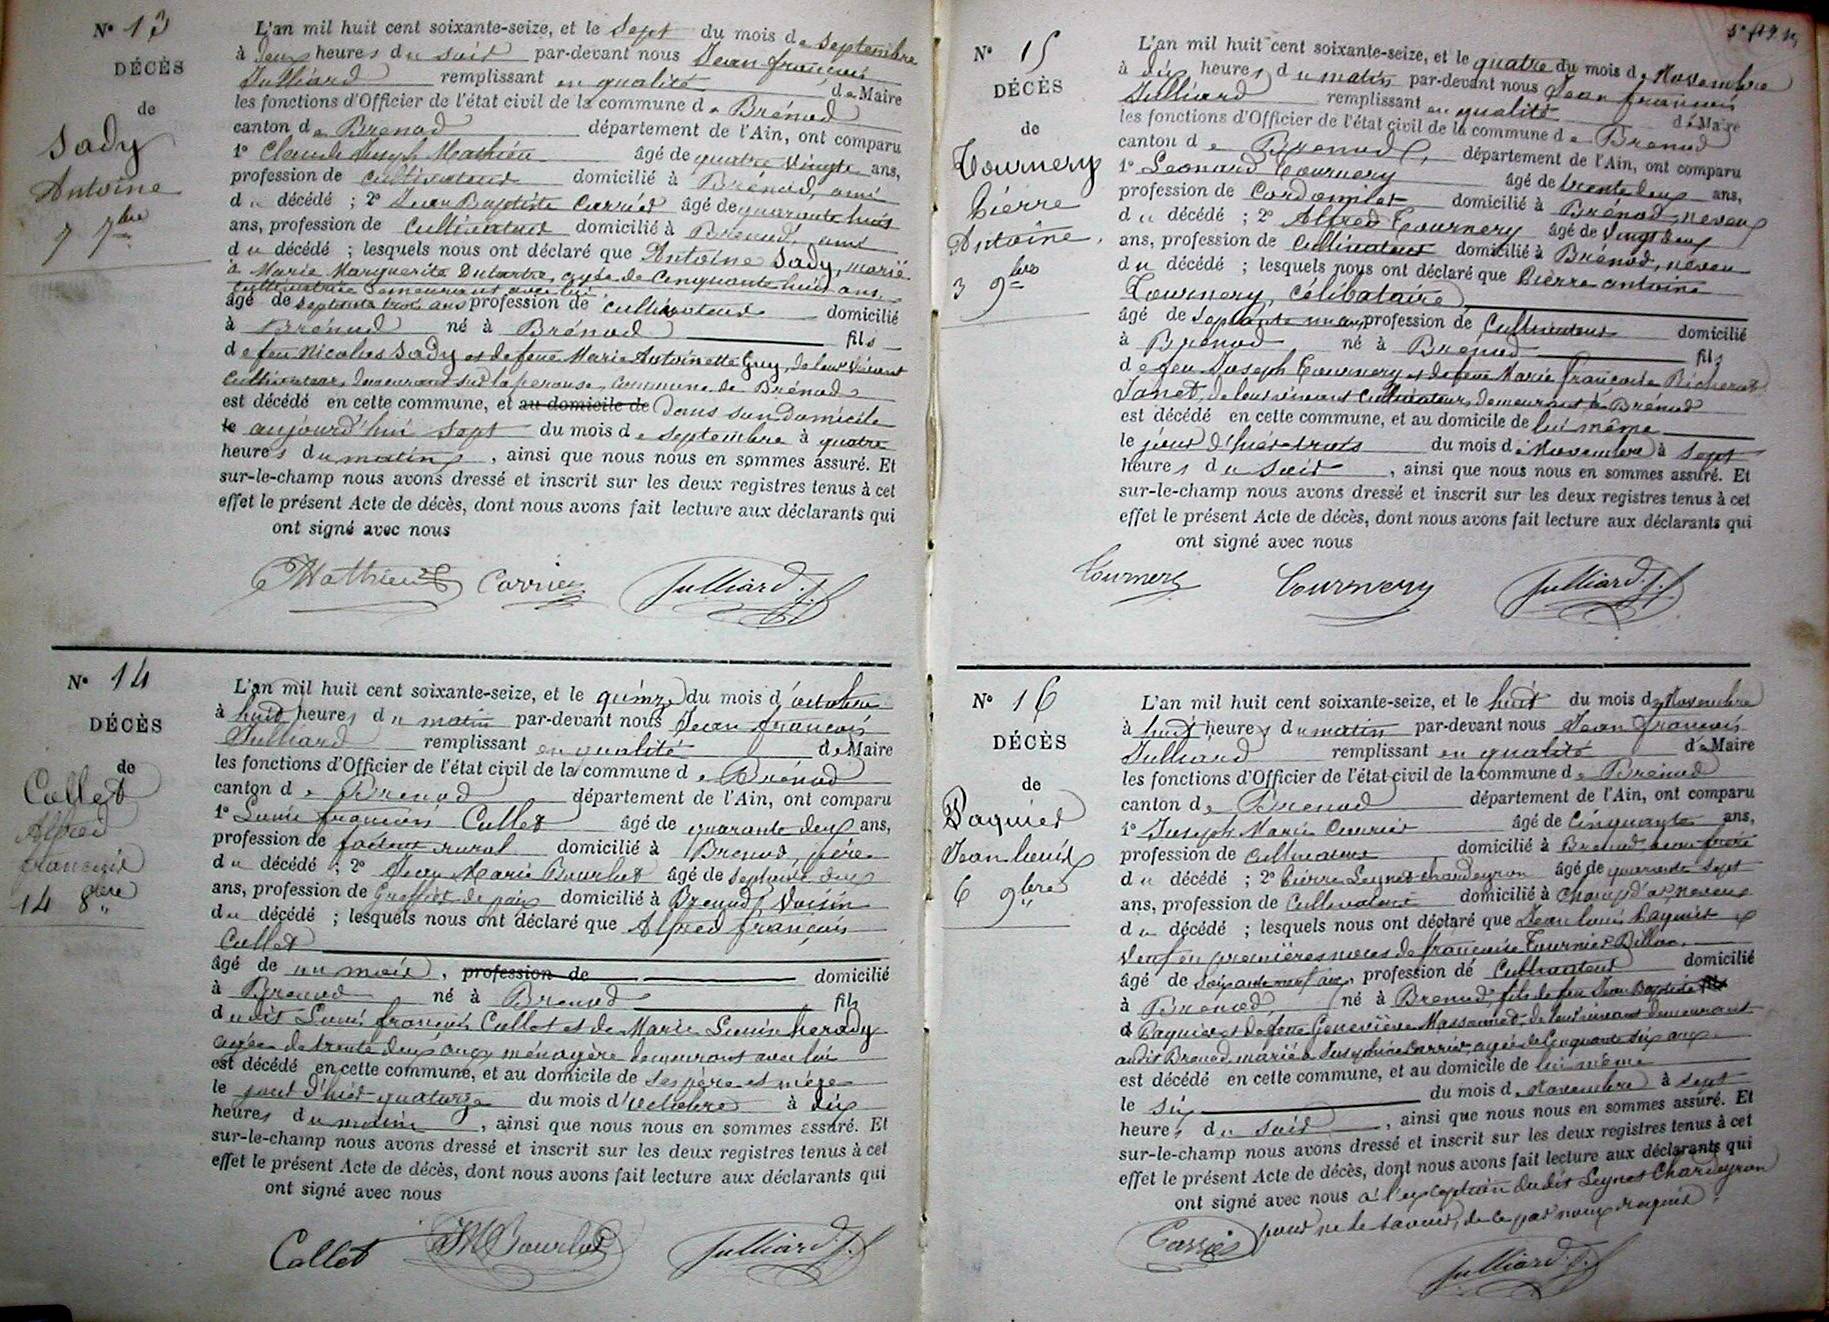 N° 13
DÉCÈS
de
Sady
Antoine
7 7bre
L'an mil huit cent soixante-seize, et le Sept du mois de Septembre
à deux heures du soir par-devant nous Jean françois
Julliard remplissant en qualité de Maire
les fonctions d'Officier de l'état civil de la commune de Brénod
canton de Brenod département de l'Ain, ont comparu
1° Claude Joseph Mathieu âgé de quatre vingts ans,
profession de cultivateur domicilié à Brénod, ami
du décédé ; 2° Jean Baptiste Carrier âgé de quarante huit
ans, profession de cultivateur domicilié à Brénod, ami
du décédé ; lesquels nous ont déclaré que Antoine Sady, marié
à Marie Marguerite Dutartre, agée de Cinquante huit ans,
cultivatrice demeurant avec lui
âgé de septante trois ans profession de cultivateur domicilié
à Brénod né à Brénod fils
de feu Nicolas Sady et de feue Marie Antoinette Guy, de leur vivant
cultivateurs, demeurant sur la perouse, commune de Brénod
est décédé en cette commune, et au domicile de Dans son domicile
le aujourd'hui sept du mois de septembre à quatre
heures du matin, ainsi que nous nous en sommes assuré. Et
sur-le-champ nous avons dressé et inscrit sur les deux registres tenus à cet
effet le présent Acte de décès, dont nous avons fait lecture aux déclarants qui
ont signé avec nous
Mathieu Carrier Julliard J. f.
N° 14
DÉCÈS
de
Collet
Alfred
françois
14 8bre
L'an mil huit cent soixante-seize, et le quinze du mois d'octobre
à huit heures du matin par-devant nous Jean françois
Julliard remplissant en qualité de Maire
les fonctions d'Officier de l'état civil de la commune de Brénod
canton de Brenod département de l'Ain, ont comparu
1° Louis françois Collet âgé de quarante deux ans,
profession de facteur rural domicilié à Brenod, père
du décédé ; 2° Jean Marie Bourlot âgé de septante deux
ans, profession de Greffier de paix domicilié à Brenod, Voisin
du décédé ; lesquels nous ont déclaré que Alfred françois
Collet
âgé de un mois, profession de domicilié
à Brenod né à Brenod fils
dudit Louis françois Collet et de Marie
agée de trente deux ans, ménagère demeurant avec lui
est décédé en cette commune, et au domicile de ses père et mère
le jour d'hier quatorze du mois d'octobre à dix
heures du matin, ainsi que nous nous en sommes assuré. Et
sur-le-champ nous avons dressé et inscrit sur les deux registres tenus à cet
effet le présent Acte de décès, dont nous avons fait lecture aux déclarants qui
ont signé avec nous
Collet JM Bourlot Julliard J. f.
N° 15
DÉCÈS
de
Tournery
Pierre
Antoine,
3 9bre
L'an mil huit cent soixante-seize, et le quatre du mois de Novembre
à dix heures du matin par-devant nous Jean françois
Julliard remplissant en qualité de Maire
les fonctions d'Officier de l'état civil de la commune de Brenod
canton de Brenod, département de l'Ain, ont comparu
1° Leonard Tournery âgé de trente deux ans,
profession de Cordonnier domicilié à Brénod neveu
du décédé ; 2° Alfred Tournery âgé de Vingt deux
ans, profession de Cultivateur domicilié à Brénod, neveu
du décédé ; lesquels nous ont déclaré que Pierre antoine
Tournery, célibataire
âgé de septante un ans, profession de Cultivateur domicilié
à Brenod né à Brénod fils
de feu Joseph Tournery et de feue Marie françoise Richerot
Janet, de leur vivant Cultivateurs, demeurant à Brénod
est décédé en cette commune, et au domicile de lui même
le jour d'hier trois du mois de Novembre à sept
heures du Soir, ainsi que nous nous en sommes assuré. Et
sur-le-champ nous avons dressé et inscrit sur les deux registres tenus à cet
effet le présent Acte de décès, dont nous avons fait lecture aux déclarants qui
ont signé avec nous
Tournery Tournery Julliard J. f.
N° 16
DÉCÈS
de
Paquier
Jean louis
6 9bre
L'an mil huit cent soixante-seize, et le huit du mois de Novembre
à huit heures du matin par-devant nous Jean françois
Julliard remplissant en qualité de Maire
les fonctions d'Officier de l'état civil de la commune de Brénod
canton de Brenod département de l'Ain, ont comparu
1° Joseph Marie Carrier âgé de Cinquante ans,
profession de cultivateur domicilié à Brenod beau frère
du décédé ; 2° Pierre Seynet chardeyron âgé de quarante sept
ans, profession de Cultivateur domicilié à Champd'or, neveu
du décédé ; lesquels nous ont déclaré que Jean louis Paquier
Veuf en premières noces de françoise Tournier Billon,
âgé de soixante neuf ans, profession de Cultivateur domicilié
à Brenod, né à Brenod, fils de feu Jean Baptiste
Paquier et de feue Geneviève Massonnet, de leur vivant demeurant
audit Brenod, marié à Josephine Carrier, agée de Cinquante six ans
est décédé en cette commune, et au domicile de lui même
le six du mois de Novembre à sept
heures du soir, ainsi que nous nous en sommes assuré. Et
sur-le-champ nous avons dressé et inscrit sur les deux registres tenus à cet
effet le présent Acte de décès, dont nous avons fait lecture aux déclarants qui
ont signé avec nous à l'exception dudit Seynet Chardeyron
pour ne le savoir, de ce par nous requis.
Carrier Julliard J. f.